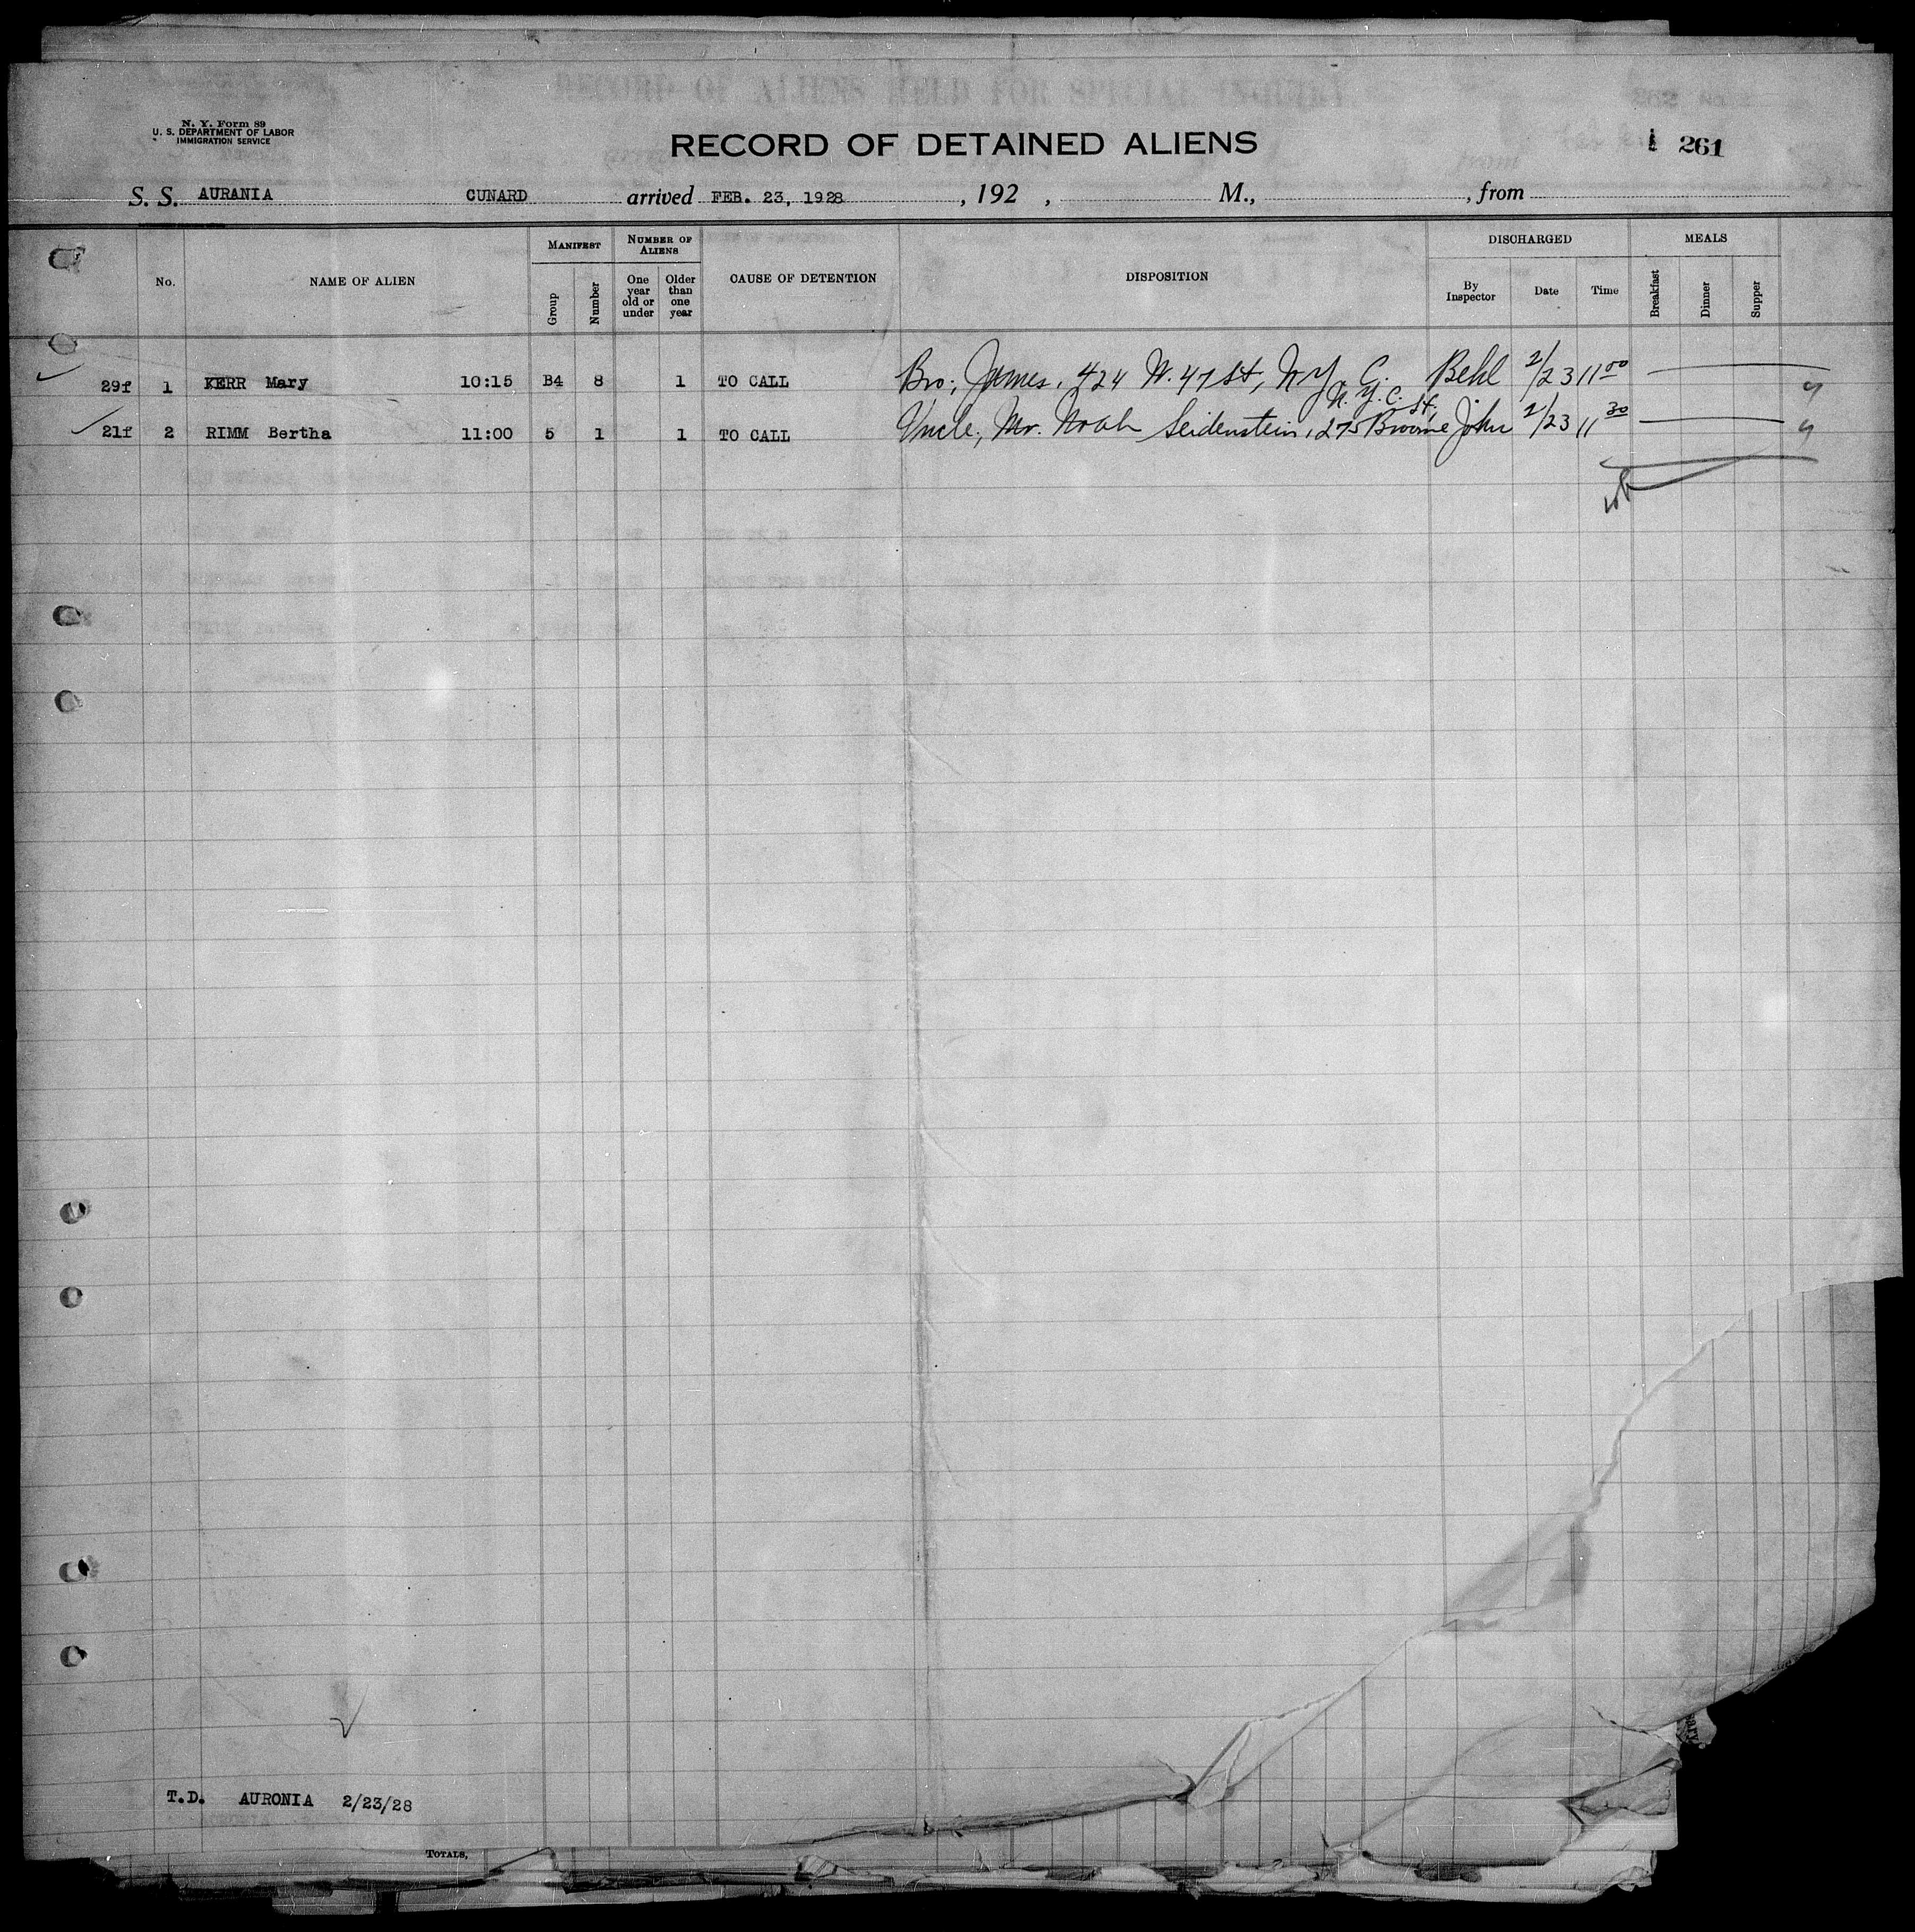 N. Y. Form 89
U. S. DEPARTMENT OF LABOR
IMMIGRATION SERVICE
RECORD OF DETAINED ALIENS
261
S. S. AURANIA CUNARD arrived FEB. 23, 1928, 192 , M., , from
No. NAME OF ALIEN MANIFEST Group Number NUMBER OF ALIENS One year old or under Older than one year CAUSE OF DETENTION DISPOSITION DISCHARGED By Inspector Date Time MEALS Breakfast Dinner Supper
29f 1 KERR Mary 10:15 B4 8 1 TO CALL Bro; James, 424 W. 47 St, N.Y.C. Behl 2/23 11 00
21f 2 RIMM Bertha 11:00 5 1 1 TO CALL Uncle; Mr. Noah Seidenstein, 275 Broome St. N.Y.C. John 2/23 11 30
T.D. AURONIA 2/23/28
TOTALS,